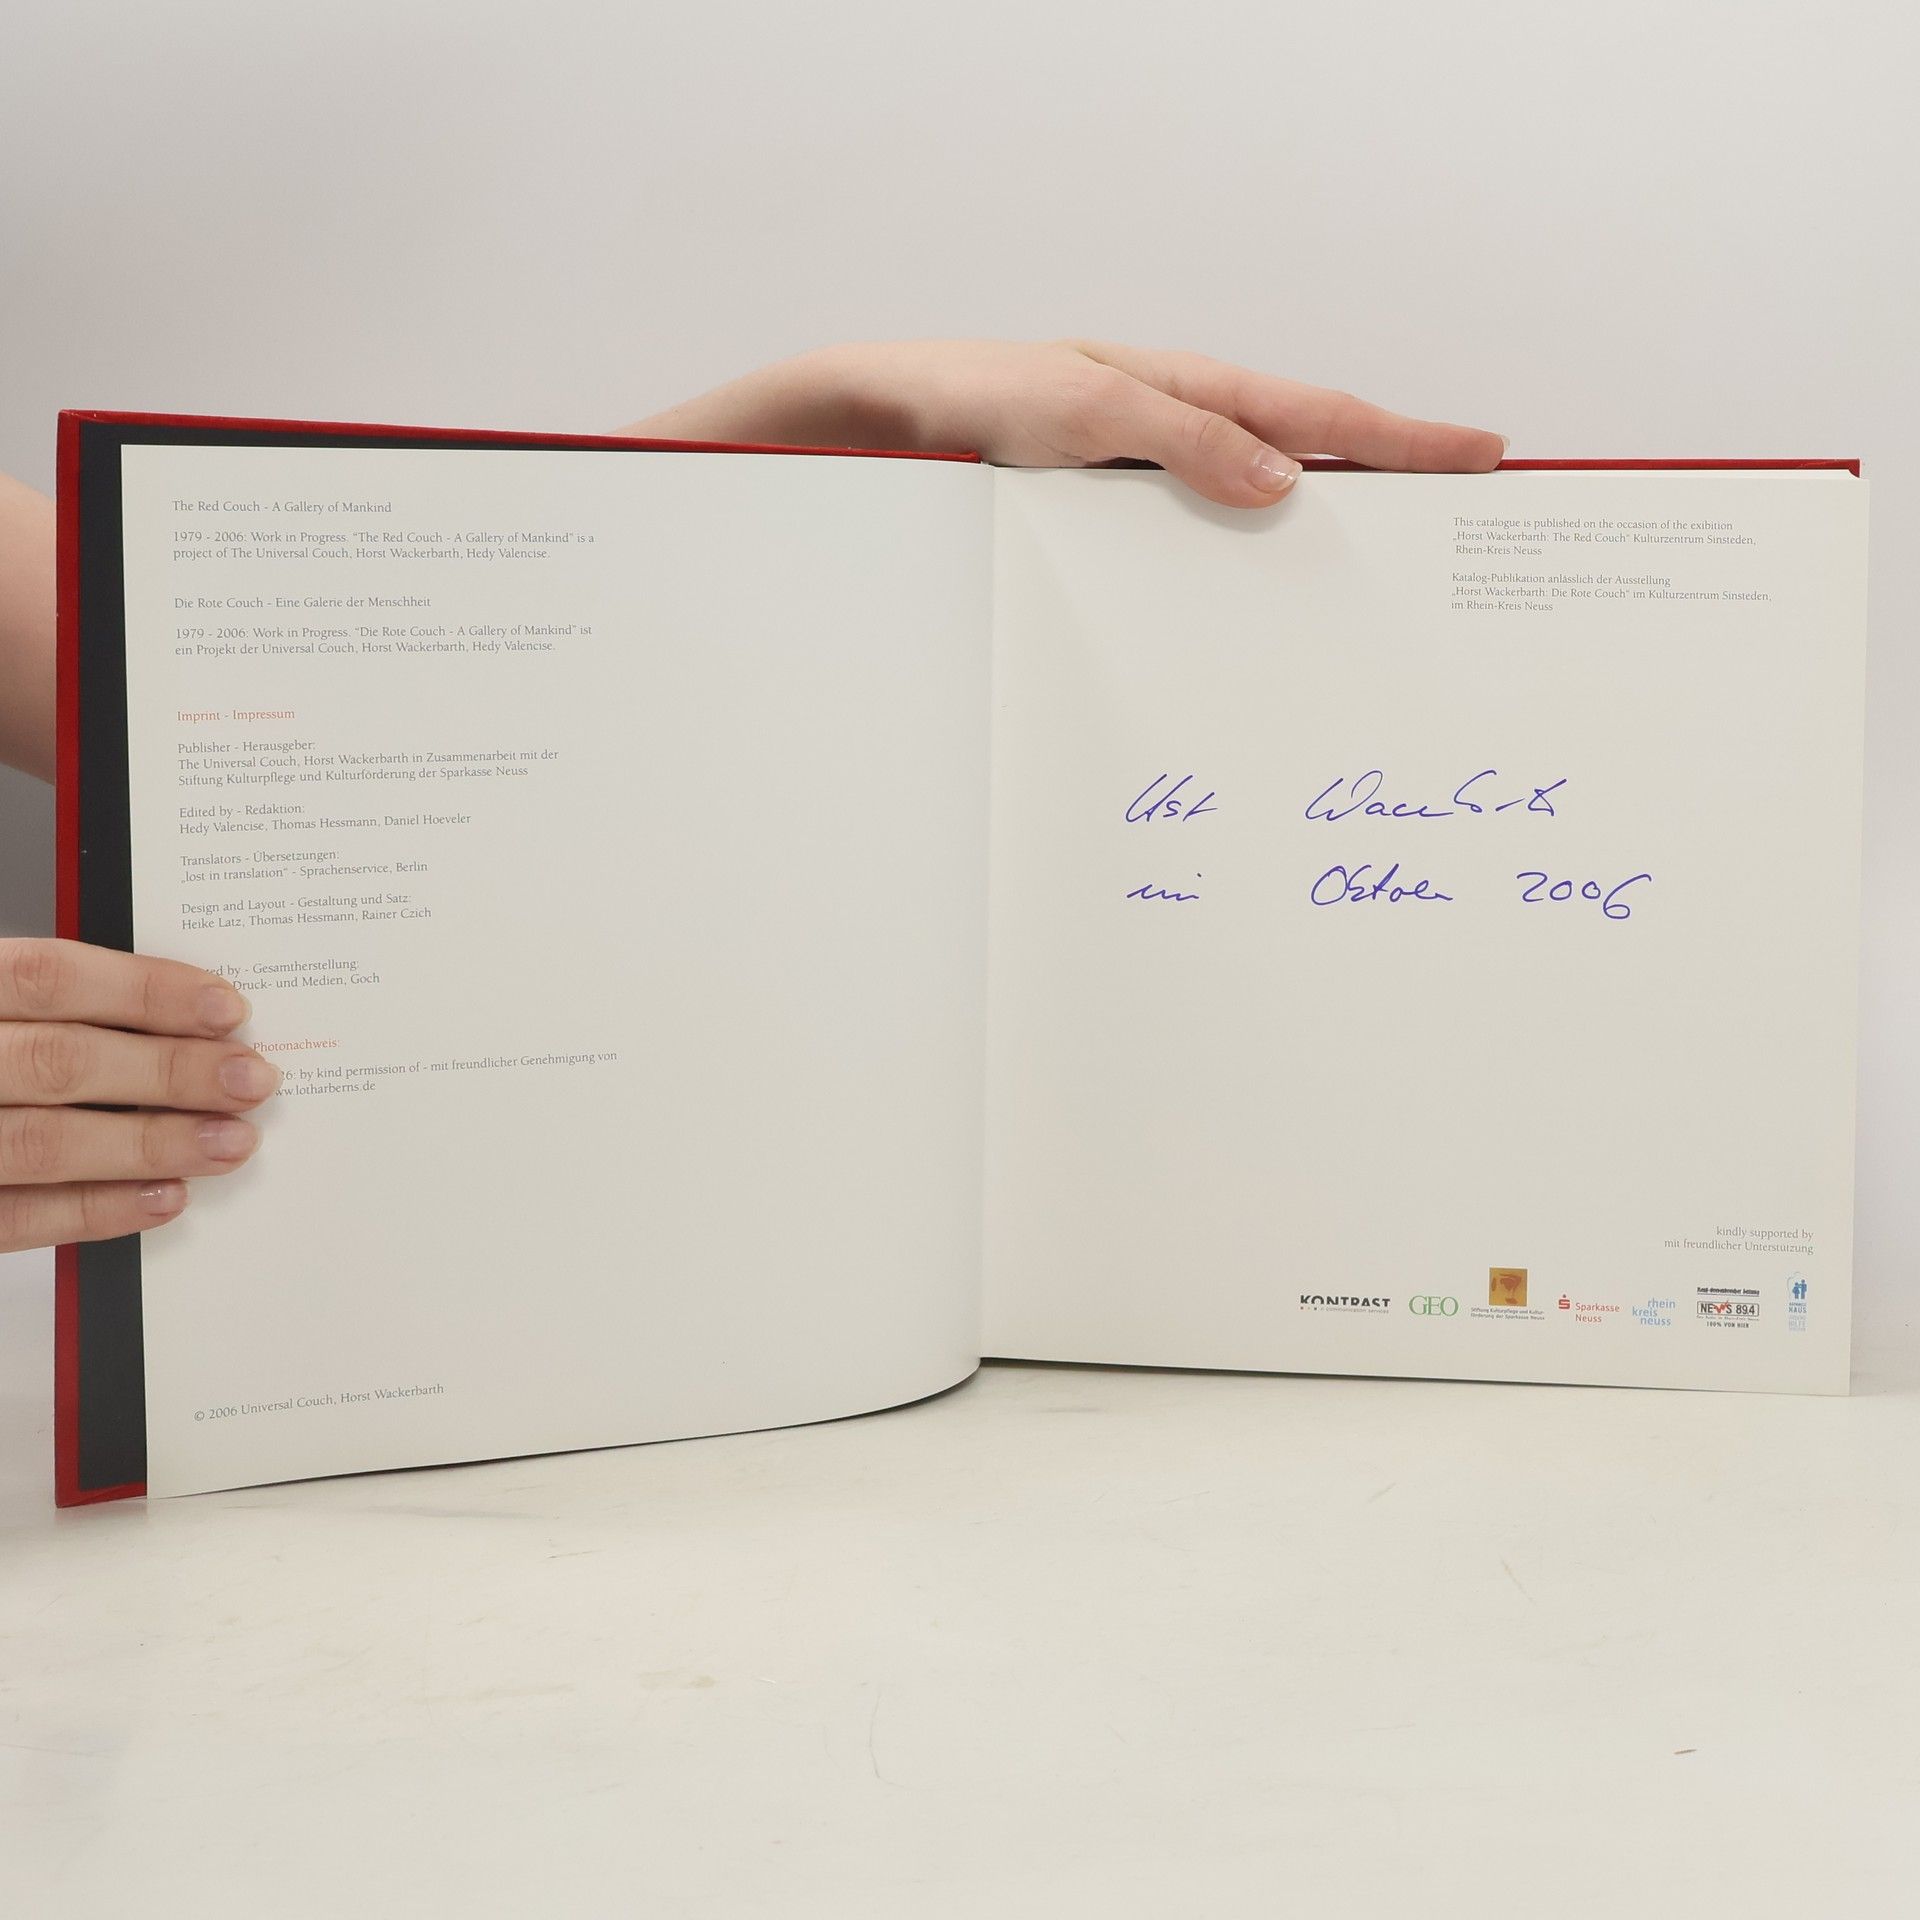 The Red Couch - A Gallery of Mankind
1979 - 2006: Work in Progress. "The Red Couch - A Gallery of Mankind" is a
project of The Universal Couch, Horst Wackerbarth, Hedy Valencise.
Die Rote Couch - Eine Galerie der Menschheit
1979 - 2006: Work in Progress. "Die Rote Couch - A Gallery of Mankind" ist
ein Projekt der Universal Couch, Horst Wackerbarth, Hedy Valencise.
Imprint - Impressum
Publisher - Herausgeber:
The Universal Couch, Horst Wackerbarth in Zusammenarbeit mit der
Stiftung Kulturpflege und Kulturförderung der Sparkasse Neuss
Edited by - Redaktion:
Hedy Valencise, Thomas Hessmann, Daniel Hoeveler
Translators - Übersetzungen:
„lost in translation" - Sprachenservice, Berlin
Design and Layout - Gestaltung und Satz:
Heike Latz, Thomas Hessmann, Rainer Czich
by - Gesamtherstellung:
Druck- und Medien, Goch
Photonachweis:
26: by kind permission of - mit freundlicher Genehmigung von
ww.lotharberns.de
© 2006 Universal Couch, Horst Wackerbarth
This catalogue is published on the occasion of the exibition
„Horst Wackerbarth: The Red Couch" Kulturzentrum Sinsteden,
Rhein-Kreis Neuss
Katalog-Publikation anlässlich der Ausstellung
„Horst Wackerbarth: Die Rote Couch" im Kulturzentrum Sinsteden,
im Rhein-Kreis Neuss
Horst Wackerbarth
im Oktober 2006
kindly supported by
mit freundlicher Unterstützung
KONTRAST
communication services
GEO
Stiftung Kulturpflege und Kultur-
förderung der Sparkasse Neuss
Sparkasse
Neuss
rhein
kreis
neuss
NE'S 89.4
100% VON HIER
HAUS
HILFE